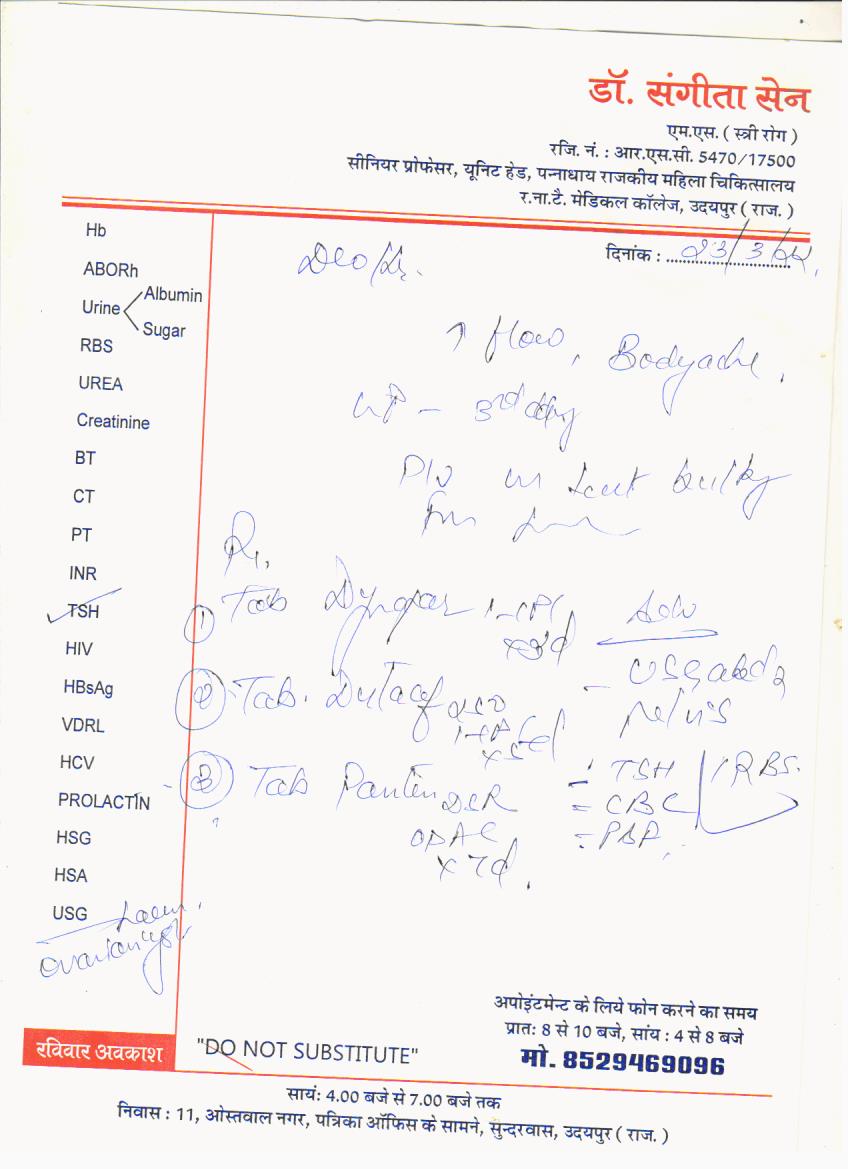 डॉ. संगीता सेन
एम.एस. ( स्त्री रोग )
रजि. नं. : आर.एस.सी. 5470/17500
सीनियर प्रोफेसर, यूनिट हेड, पन्नाधाय राजकीय महिला चिकित्सालय
र.ना.टै. मेडिकल कॉलेज, उदयपुर ( राज. )
दिनांक : 23/3/22
Hb
ABORh
Urine Albumin
Sugar
RBS
UREA
Creatinine
BT
CT
PT
INR
TSH
HIV
HBsAg
VDRL
HCV
PROLACTIN
HSG
HSA
USG
ovarian cyst
↑ flow, Bodyache,
3rd day
bulky
① Tab
② Tab.
250
③ Tab
OD AC
x 7d.
Adv
- USG abd &
pelvis
TSH / RBS.
= CBC
रविवार अवकाश
"DO NOT SUBSTITUTE"
अपोइंटमेन्ट के लिये फोन करने का समय
प्रात: 8 से 10 बजे, सांय : 4 से 8 बजे
मो. 8529469096
सायं: 4.00 बजे से 7.00 बजे तक
निवास : 11, ओस्तवाल नगर, पत्रिका ऑफिस के सामने, सुन्दरवास, उदयपुर ( राज. )